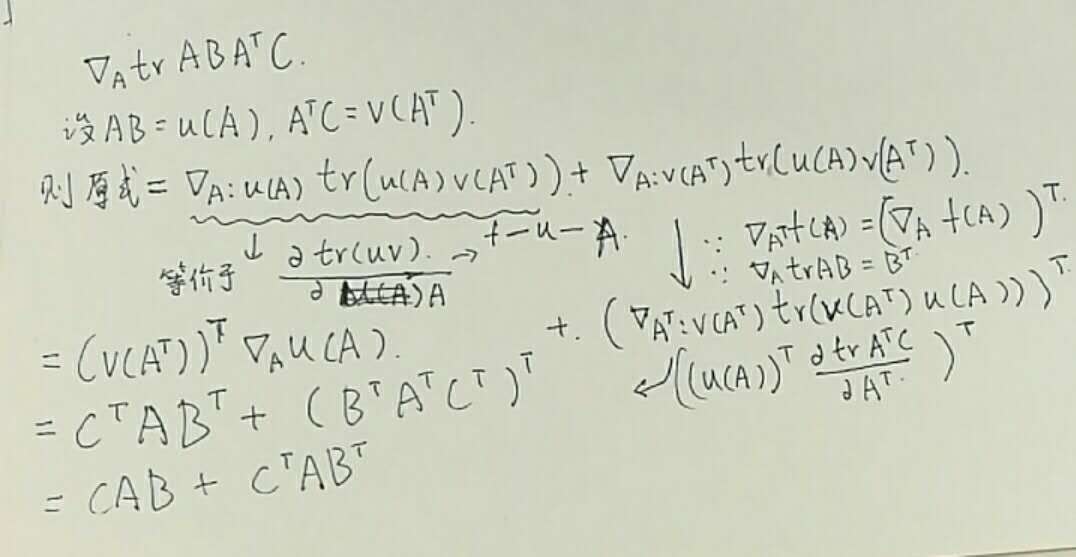 ∇_A tr ABA^T C.
设 AB = u(A), A^T C = v(A^T).
则原式 = ∇_{A:u(A)} tr(u(A)v(A^T)) + ∇_{A:v(A^T)} tr(u(A)v(A^T)).
↓ 等价于 ∂tr(uv)/∂A → f-u-A. ↓ ∵ ∇_{A^T} f(A) = (∇_A f(A))^T.
∵ ∇_A tr AB = B^T.
= (v(A^T))^T ∇_A u(A). + (∇_{A^T:v(A^T)} tr(v(A^T)u(A)))^T.
↙ ((u(A))^T ∂tr A^T C/∂A^T)^T
= C^T AB^T + (B^T A^T C^T)^T
= CAB + C^T AB^T